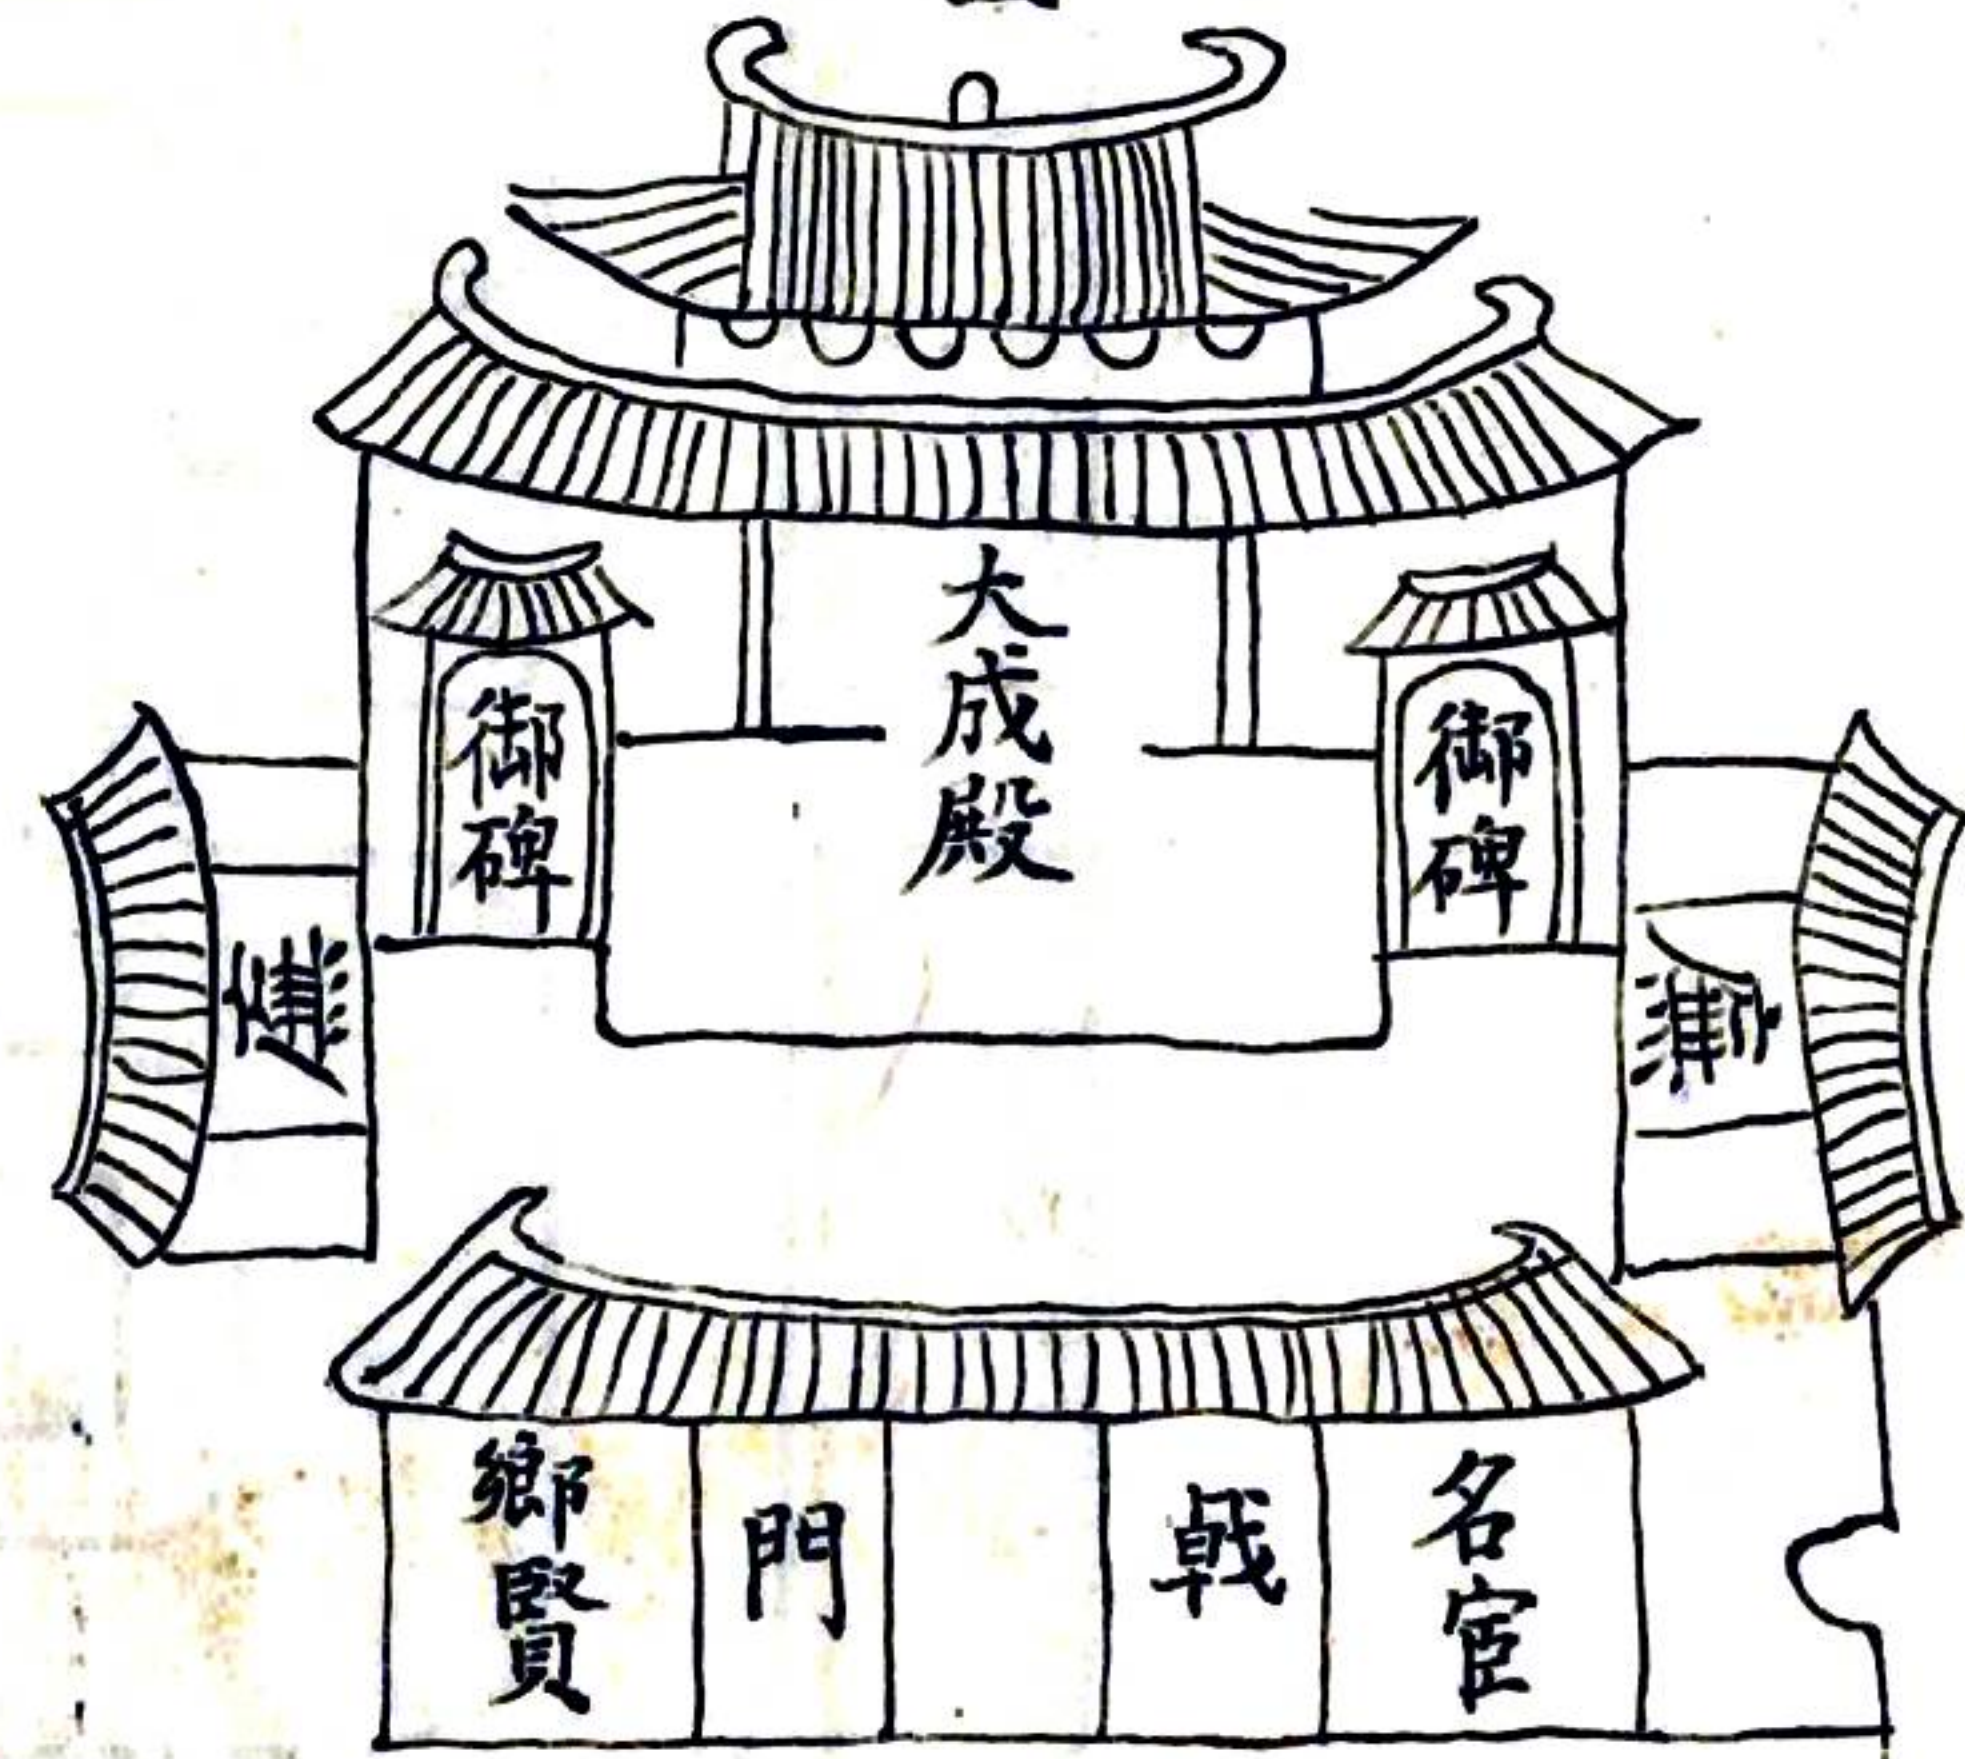 大成殿
御碑
御碑
廡
廡
名宦
戟門
鄉賢